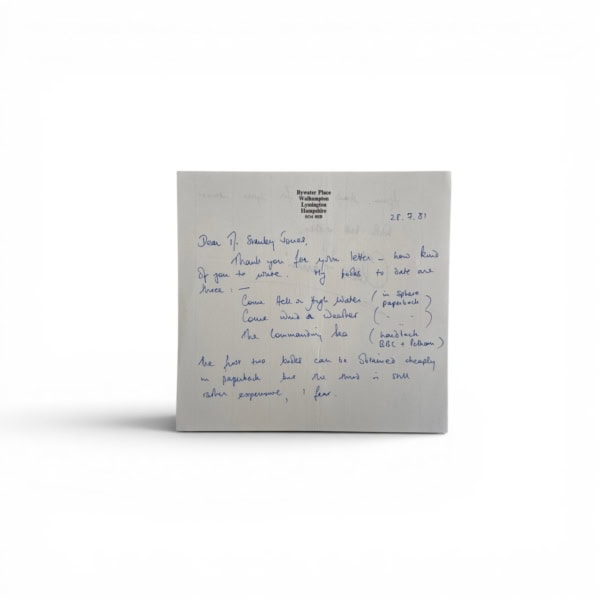 Bywater Place
Walhampton
Lymington
Hampshire
28.7.81
Dear Mr. Stanley Jones,
Thank you for your letter – how kind
of you to write. My books to date are
three: —
Come Hell or High Water (in Sphere paperback)
Come Wind or Weather ( " " )
The Commanding Sea (hardback BBC + Pelham)
The first two books can be obtained cheaply
in paperback but the third is still
rather expensive, I fear.